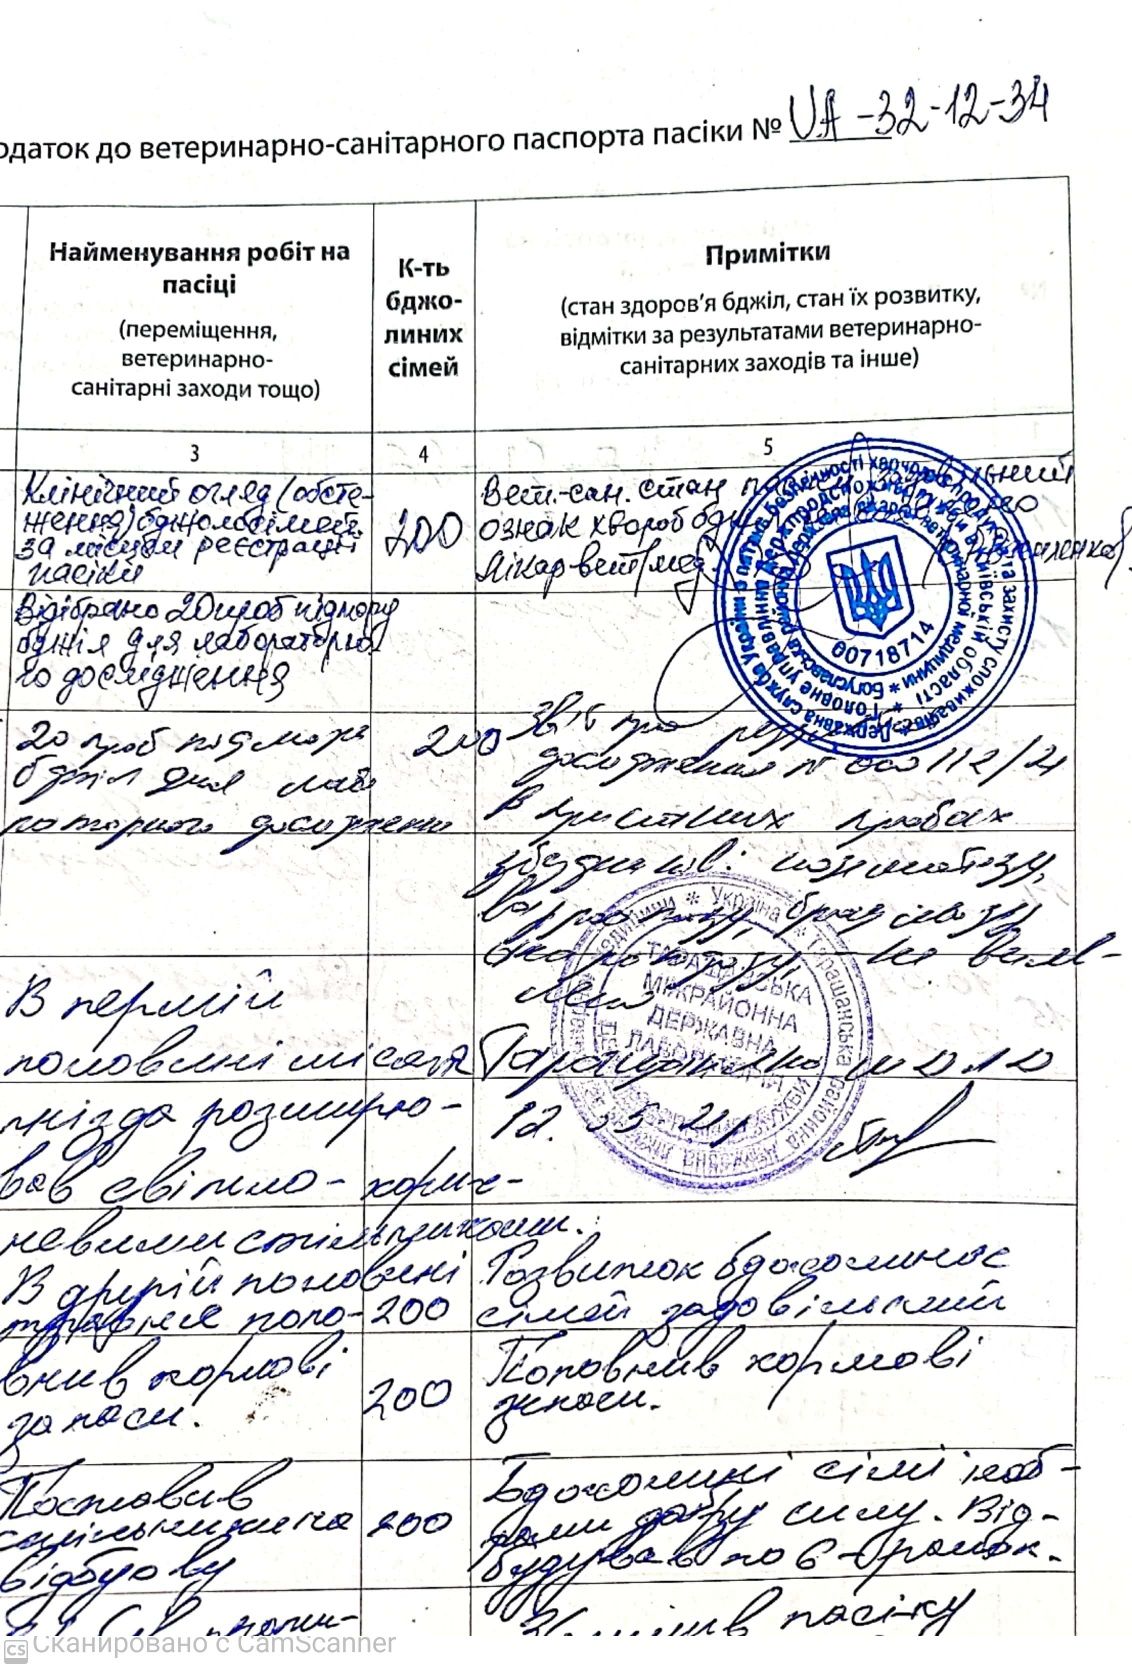 одаток до ветеринарно-санітарного паспорта пасіки № UA-32-12-34
Найменування робіт на
пасіці
(переміщення,
ветеринарно-
санітарні заходи тощо)
К-ть
бджо-
линих
сімей
Примітки
(стан здоров’я бджіл, стан їх розвитку,
відмітки за результатами ветеринарно-
санітарних заходів та інше)
3
4
5
Клінічний огляд (обсте-
ження) бджолосімей
за місцем реєстрації
пасіки
200
Вет.-сан. стан
ознак хвороб
Лікар вет. мед.
Відібрано 20 проб підмору
бджіл для лабораторно
го дослідження
20 проб підмору
бджіл для лабо
раторного
200
Звіт про
дослідження № 000112/21
В присланих пробах
збудників: нозематозу,
варроатозу, браульозу,
акарапозу, не вияв-
лено
12.05.21
В першій
половині місяця
гнізда розширю-
вав світло-корич-
невими стільниками.
В другій половині
травня попо-
внив кормові
запаси.
200
Розвиток бджолиних
сімей задовільний
200
Поповнив кормові
запаси.
Поставив
стільники на
відбудову
200
Бджолині сімї наб-
рали добру силу. Від-
будував по 6-рамок.
пасіку
Державна служба України з питань безпечності харчових продуктів та захисту споживачів
Головне управління Держпродспоживслужби в Київській області
Богуславська районна державна лікарня ветеринарної медицини
00718714
Україна
ТАРАЩАНСЬКА
МІЖРАЙОННА
ДЕРЖАВНА
ЛАБОРАТОРІЯ
CS Сканировано с CamScanner